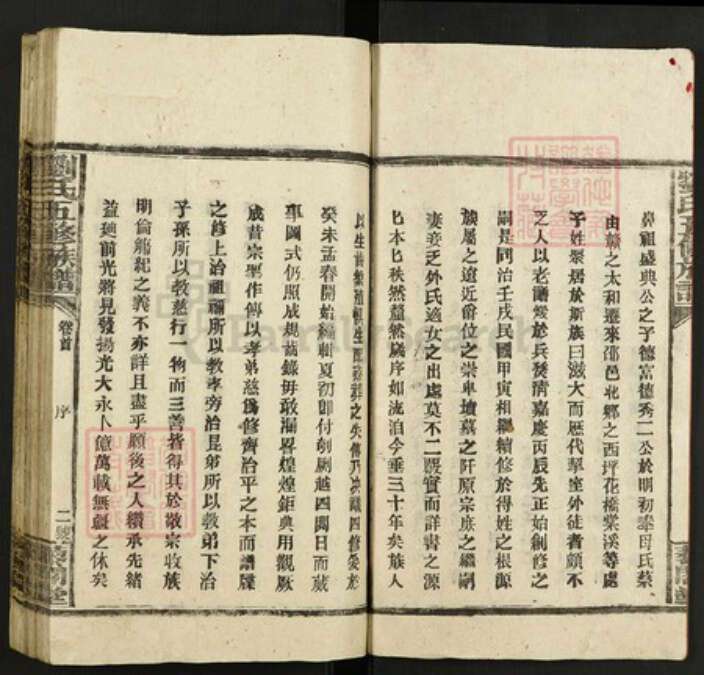 鼻祖盛典公之子德富德秀二公於明初奉母氏蔡
由贛之太和遷來邵邑北鄉之西坪花橋棠溪等處
子姓聚居於斯族曰滋大而歷代華座外徒者頗不
乏人以老譜燬於兵燹清嘉慶丙辰先正始創修之
嗣是同治壬戌民國甲寅相繼續修於得姓之根源
族屬之遠近爵位之崇卑墳墓之阡原宗庶之繼嗣
妻妾之外氏適女之出處莫不二嚴實而詳書之源
匕本匕秩然釐然編序如流泊今垂三十年矣族人
以生齒繁殖
之失傳乃決議四修爰於
癸未孟春開始編輯夏初即付剞劂越四閱日而蕆
事圖式仍照成規篇錄毋敢漏畧煌煌鉅典用觀厥
成昔宗聖作傳以孝弟慈為修齊治平之本而譜牒
之修上治祖禰所以教孝旁治昆弟所以教弟下治
子孫所以教慈行一物而三善皆得其於敬宗收族
明倫飭紀之義不亦詳且盡乎願後之人纘承先緒
益廸前光將見發揚光大永卜億萬載無疆之休矣
劉氏五修族譜
卷首
序
二
FamilySearch